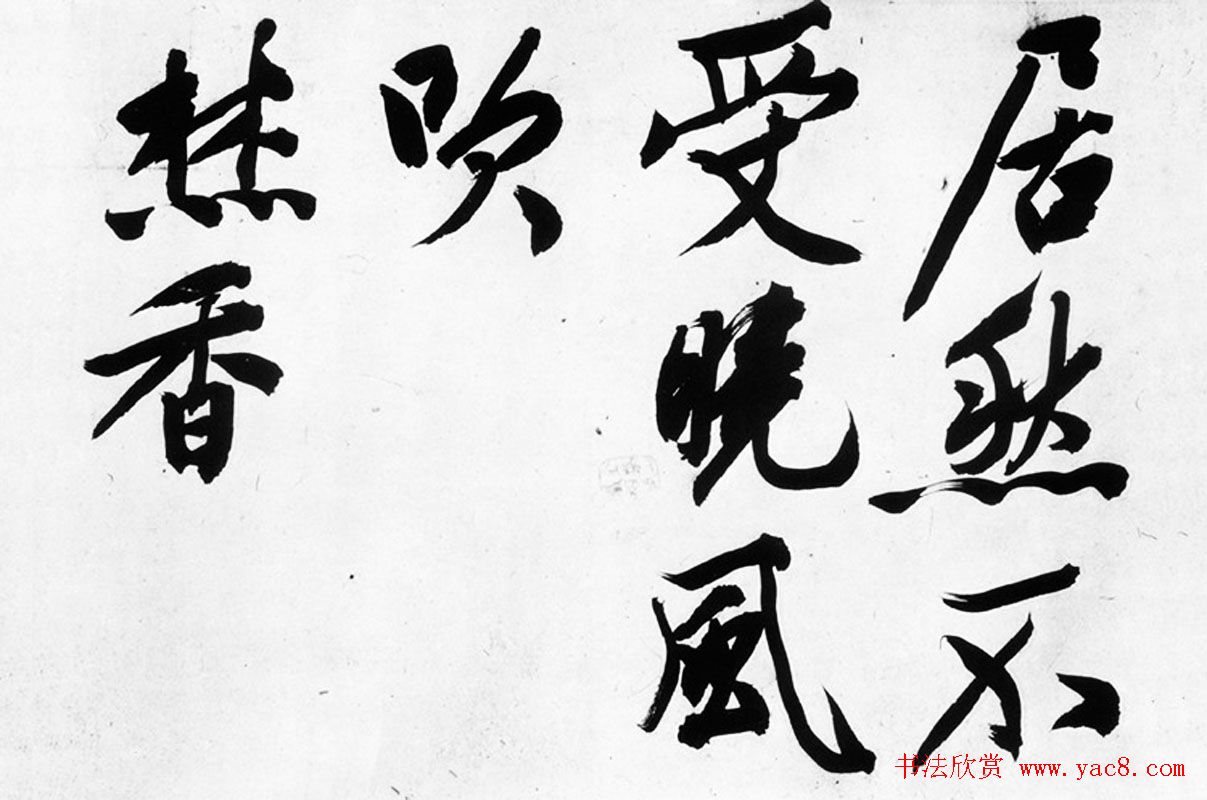 居然不
受曉風
吹
焚香
书法欣赏 www.yac8.com